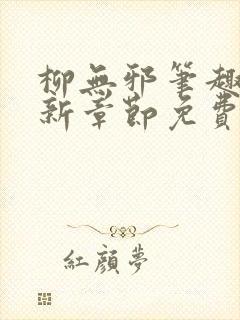 柳無邪筆趣
新章節免費
紅顏夢